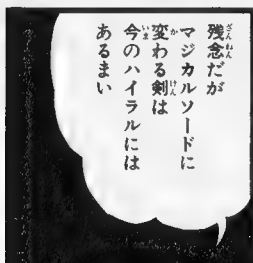 残念だが
マジカルソードに
変わる剣は
今のハイラルには
あるまい